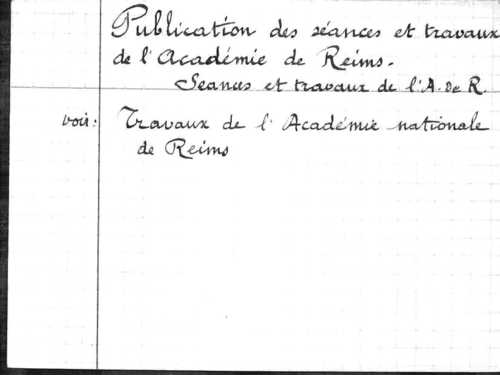 Publication des séances et travaux
de l'Académie de Reims.
Séances et travaux de l'A. de R.
voir: Travaux de l'Académie nationale
de Reims